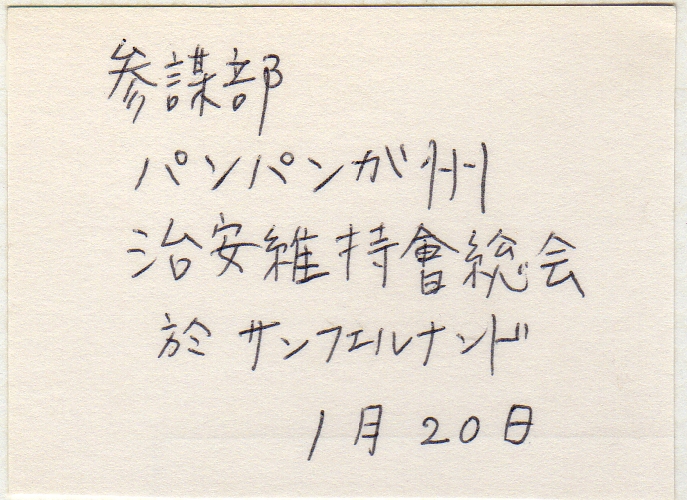 参謀部
パンパンガ州
治安維持會総会
於 サンフェルナンド
1月20日